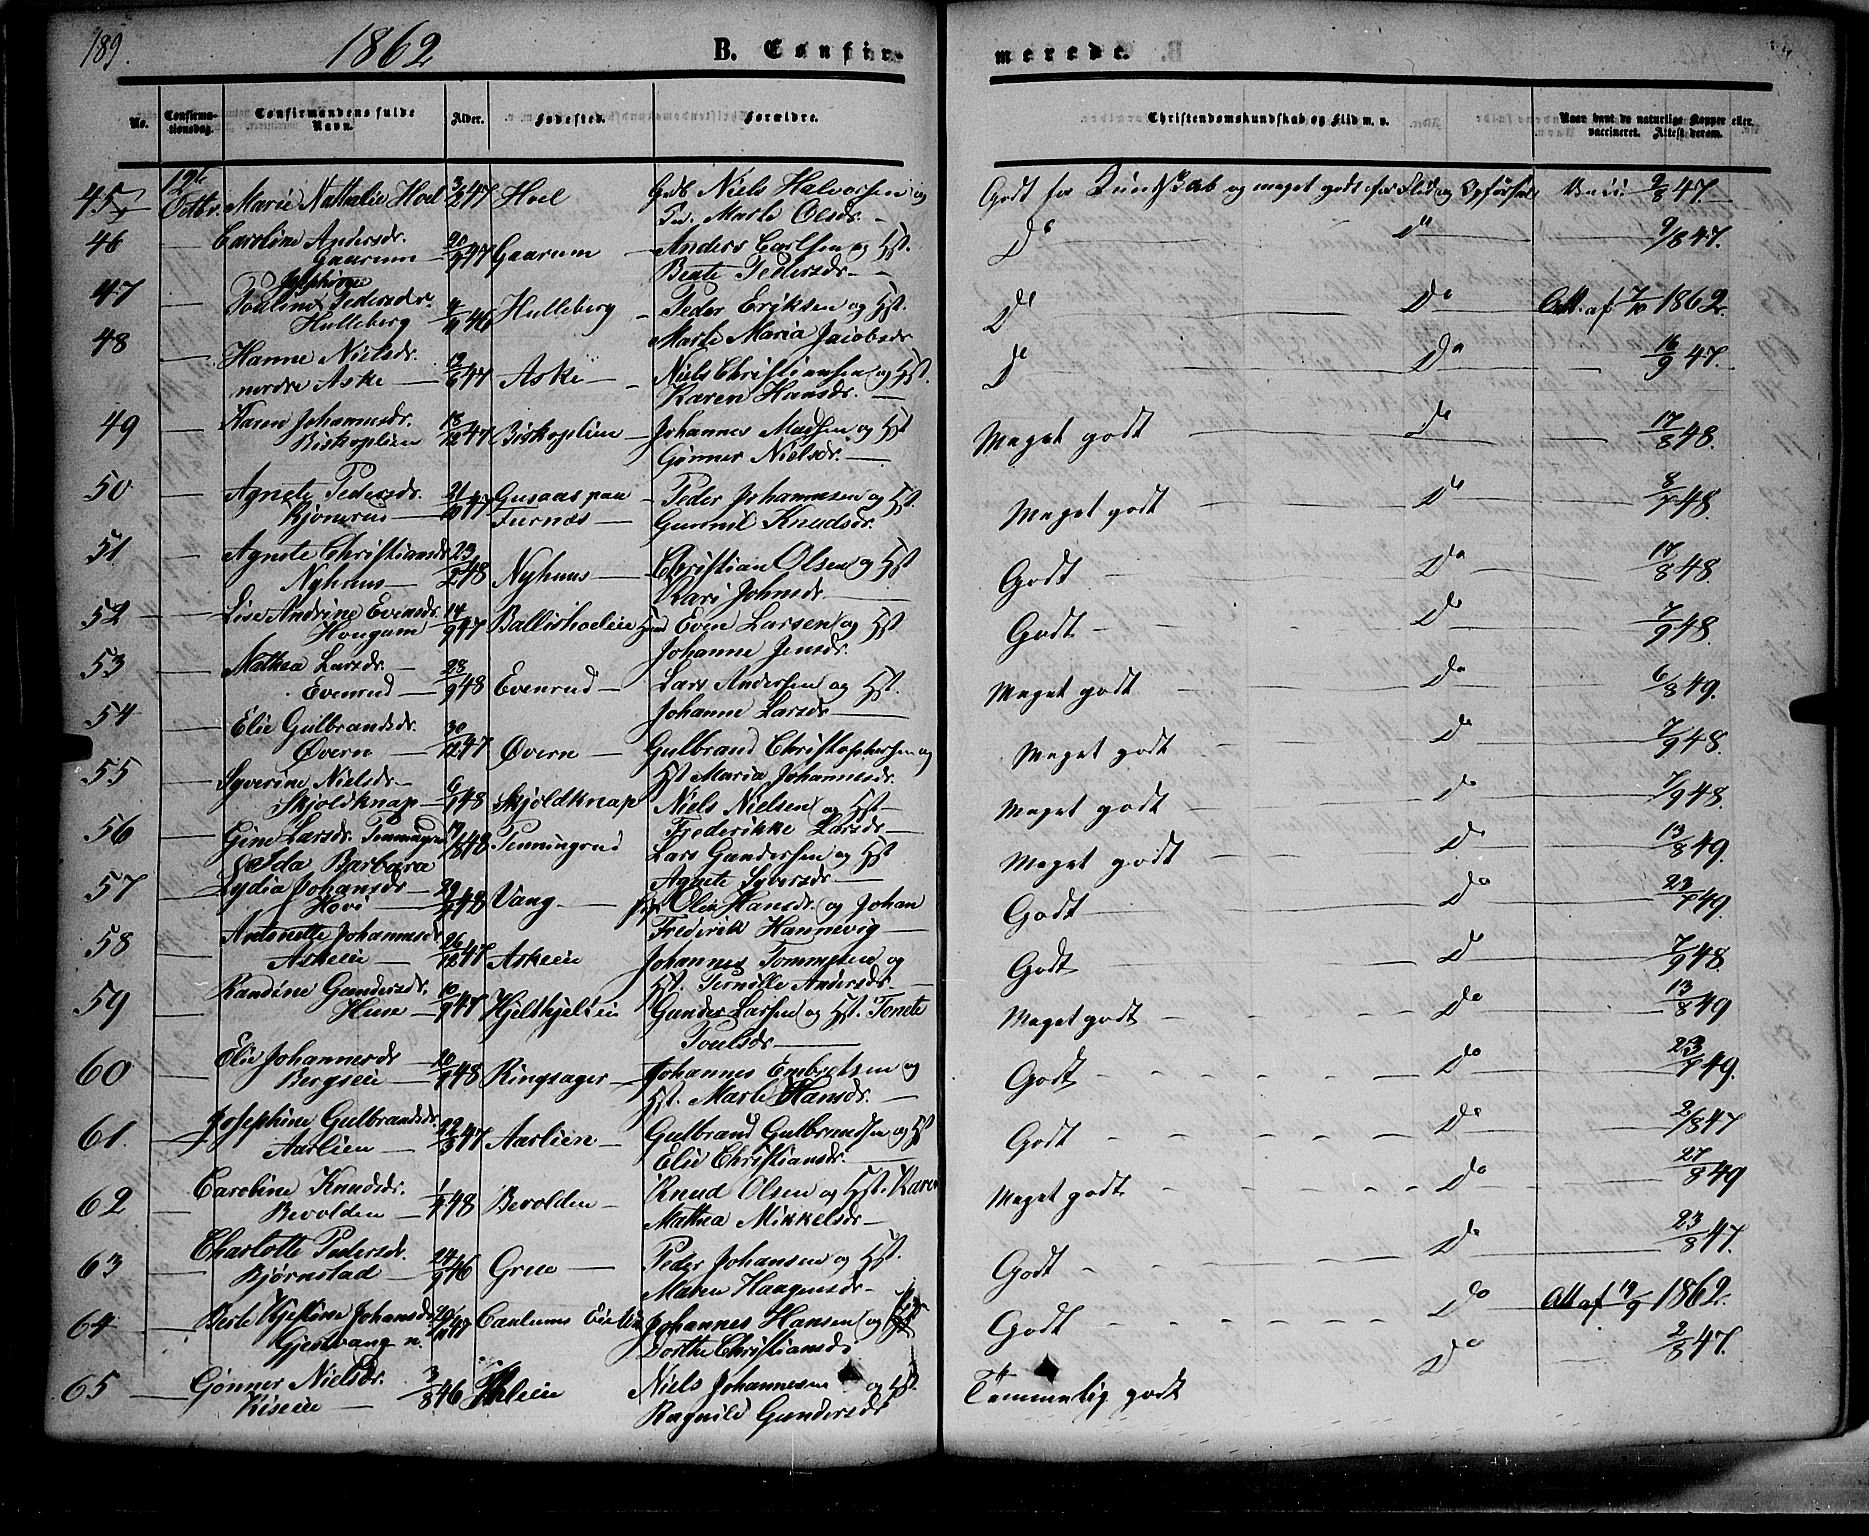 189.
1862
B. Confir-
merede.
No.
Confirma-
tionsdag.
Confirmandens fulde
Navn.
Alder.
Fødested.
Forældre.
Christendomskundskab og Flid m. v.
Naar havt de naturlige Kopper eller
vaccineret. Attest derom.
45 12te Octbr. Marie Nathalie Hoel 47 Hoel Niels Halvorsen og
Marte Olsdr.
Godt for Kundskab og meget godt for Flid og Opførsel 9/8 47.
46 — Caroline Andersdr. Gaarum 47 Gaarum — Anders Carlsen og Hst.
Beate Pedersdr. —
Do Do 9/8 47.
47 — Josephine
Pouline Pedersdr. Hulleberg 46 Hulleberg — Peder Eriksen og Hst.
Marte Maria Jacobsdr
Do Do Att. af 7/10 1862.
48 — Hanne Nielsdr. nordre Aske — 47 Aske — Niels Christiansen og Hst.
Karen Hansdr. —
Do Do 16/9 47.
49 — Karen Johannesdr. Biskoplien 18/12 47 Biskoplien — Johannes Madsen og Hst
Gønner Nielsdr. —
Meget godt Do 17/8 48.
50 — Agnete Pedersdr. 21/10 47 Gusaas paa Furnæs — Peder Johannesen og Hst.
Gunnil Knudsdr.
Meget godt Do 8/7 48.
51. — Agnete Christiansdr Nyhuus — 23/2 48 Nyhuus — Christian Olsen og Hst
Kari Johnsdr.
Godt Do 17/8 48.
52 — Lise Andrine Evensdr. Hougum 14/9 47 Ballishoeleie Even Larsen og Hst
Johanne Jensdr.
Godt Do 7/9 48.
53 — Mathea Larsdr. — Evenrud — 48 Evenrud — Lars Andersen og Hst.
Johanne Larsdr —
Meget godt Do 6/8 49.
54 — Elie Gulbrandsdr. Øvern — 30/12 47 Øvern — Gulbrand Christophersen og
Hst Maria Johannesdr.
Meget godt Do 7/9 48.
55 — Syverine Nielsdr — Skjoldknap — 48 Skjoldknap Niels Nielsen og Hst —
Frederikke Larsdr —
Meget godt Do 7/9 48.
56 — Gine Larsdr. Tenningrud 48 Tenningrud Lars Gundersen og Hst
Agnete Syversdr —
Meget godt Do 13/8 49.
57 — Ida Barbara
Lydia Johansdr — Hovi — 48 Vang — Olia Hansdr. og Johan
Frederik Hannevig —
Godt Do 23/7 49.
58 — Antonette Johannesdr Askeie — 26/12 47 Askeie Johannes Tommesen og
Hst. Pernille Andersdr —
Godt Do 7/9 48.
59 — Randine Gundersdr. Huse — 47 Hjelthjelleie Gunder Larsen og Hst. Tonete
Poulsdr —
Meget godt Do 13/8 49
60 — Elie Johannesdr Bergseie — 48 Ringsager — Johannes Embretsen og
Hst. Marte Hansdr. —
Godt Do 23/7 49.
61. — Josephine Gulbrandsdr. Aarlien — 22/3 47 Aarlien — Gulbrand Gulbrandsen og Hst
Elie Christiansdr. —
Godt Do 2/8 47
62 — Caroline Knudsdr. Bevolden — 48 Bevolden — Knud Olsen og Hst. Karen
Mathea Mikkelsdr —
Meget godt Do 27/8 49
63 — Charlotte Pedersdr. Bjørnstad — 24/9 46 Grue — Peder Johansen og Hst.
Maren Haagensdr. —
Godt Do 23/8 47.
64 — Berte Kjestine Johansdr Gjestvang n. 47 Johannes Hansen og
Dorthe Christiansdr
Godt Do Att af 19/9 1862.
65 — Gønner Nielsdr. Kiseie — 3/8 46 Niels Johannesen og Hst.
Ragnild Gundersdr
Temmelig godt Do 2/8 47.